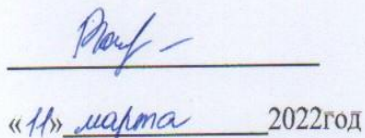 «11» марта 2022год